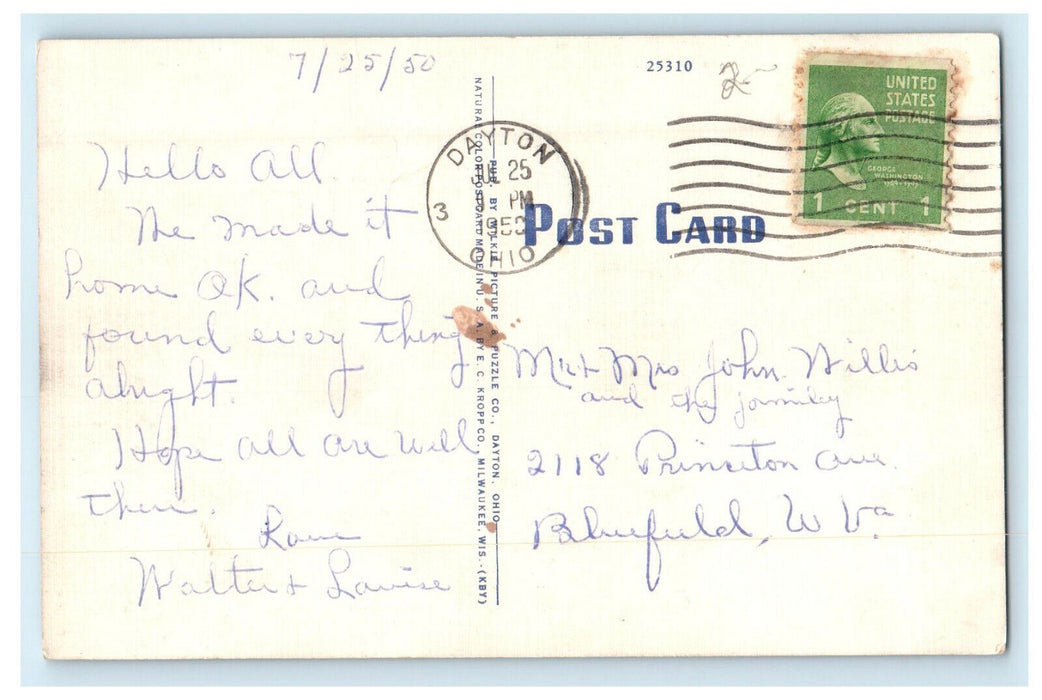 7/25/50
Hello All
We made it
home OK. and
found every thing
alright.
Hope all are well
there.
Love
Walter & Louise
NATURAL COLOR POST CARD MADE IN U. S. A. BY E. C. KROPP CO., MILWAUKEE, WIS. (KBY)
PUB. BY WILKIE PICTURE & PUZZLE CO., DAYTON, OHIO
25310
2-
DAYTON
JUL 25
PM
1950
OHIO
3
POST CARD
UNITED
STATES
POSTAGE
GEORGE
WASHINGTON
1 CENT 1
Mr & Mrs John Willis
and the family
2118 Princeton Ave.
Bluefield, W Va.